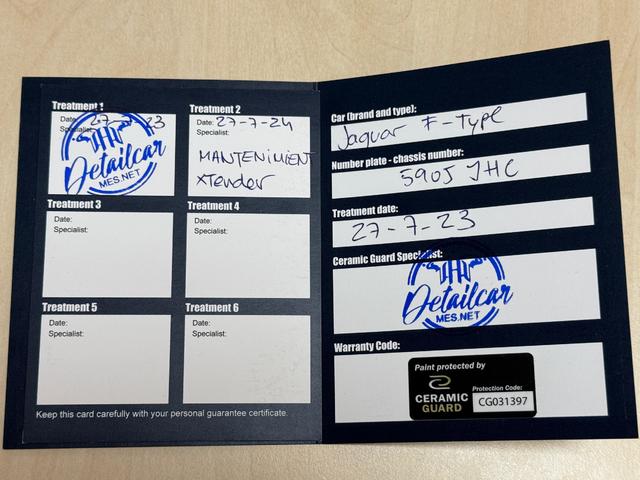 Treatment 1
Date: 27-7-23
Specialist:
Detailcar
MES.NET
Treatment 2
Date: 27-7-24
Specialist:
MANTENIMIENT
XTender
Treatment 3
Date:
Specialist:
Treatment 4
Date:
Specialist:
Treatment 5
Date:
Specialist:
Treatment 6
Date:
Specialist:
Keep this card carefully with your personal guarantee certificate.
Car (brand and type):
Jaguar F-Type
Number plate - chassis number:
5905 JHC
Treatment date:
27-7-23
Ceramic Guard Specialist:
Detailcar
MES.NET
Warranty Code:
Paint protected by
CERAMIC
GUARD
Protection Code:
CG031397